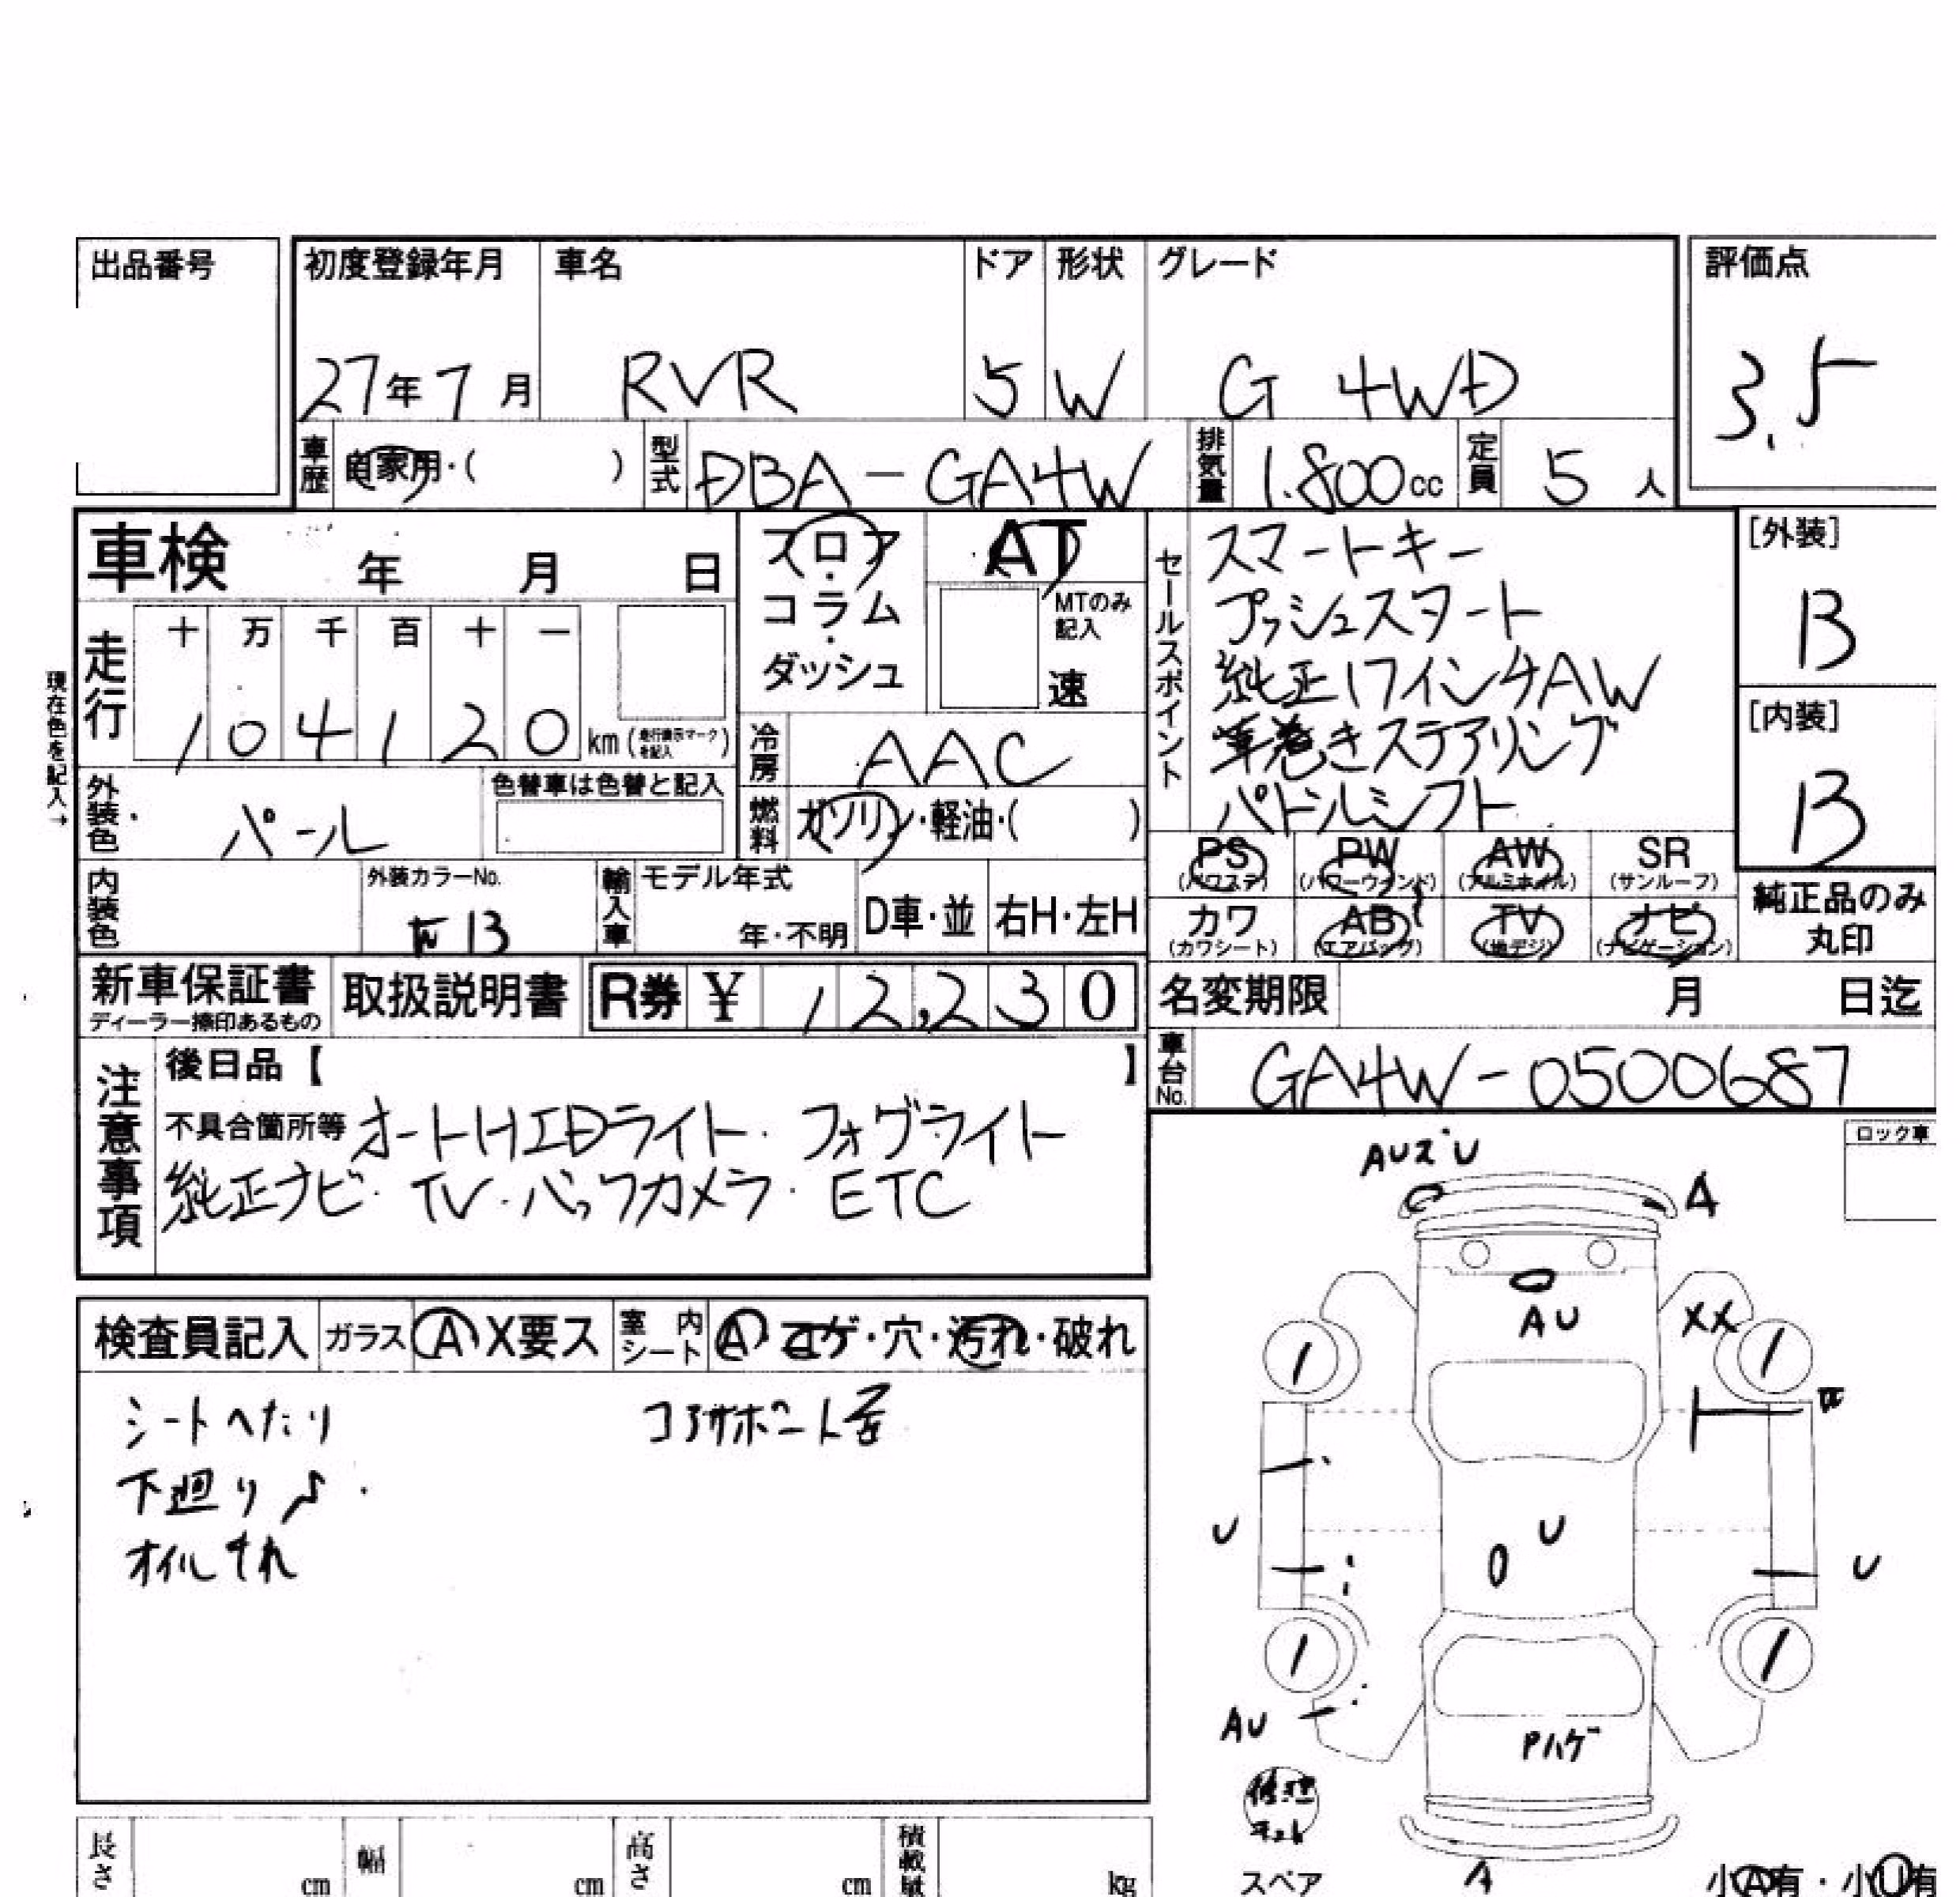 出品番号
初度登録年月 車名 ドア 形状 グレード 評価点
27年7月 RVR 5 W G 4WD 3.5
車歴 自家用・( ) 型式 DBA-GA4W 排気量 1.800cc 定員 5人
車検 年 月 日
フロア・コラム・ダッシュ
AT
MTのみ記入
速
走行 十 万 千 百 十 一
1 0 4 1 2 0 km (走行表示マークを記入)
現在色を記入→
外装色 パール 色替車は色替と記入
冷房 AAC
燃料 ガソリン・軽油・( )
内装色 外装カラーNo. W13 輸入車 モデル年式 年・不明 D車・並 右H・左H
セールスポイント
スマートキー
プッシュスタート
純正17インチAW
革巻きステアリング
パドルシフト
[外装]
B
[内装]
B
PS(パワステ) PW(パワーウインド) AW(アルミホイル) SR(サンルーフ)
カワ(カワシート) AB(エアバッグ) TV(地デジ) ナビ(ナビゲーション)
純正品のみ丸印
新車保証書 ディーラー捺印あるもの 取扱説明書 R券 ¥ 12,230
名変期限 月 日迄
車台No. GA4W-0500687
注意事項
後日品【 】
不具合箇所等 オートHIDライト・フォグライト
純正ナビ・TV・バックカメラ・ETC
ロック車
検査員記入 ガラス A X要ス 室内シート A コゲ・穴・汚れ・破れ
シートへたり コアサポート
下廻りS
オイルモレ
AU U
A
AU
XX
W
U
U
U
AU
Pハゲ
A
修理キット
スペア
小A有・小U有
長さ cm 幅 cm 高さ cm 積載量 kg